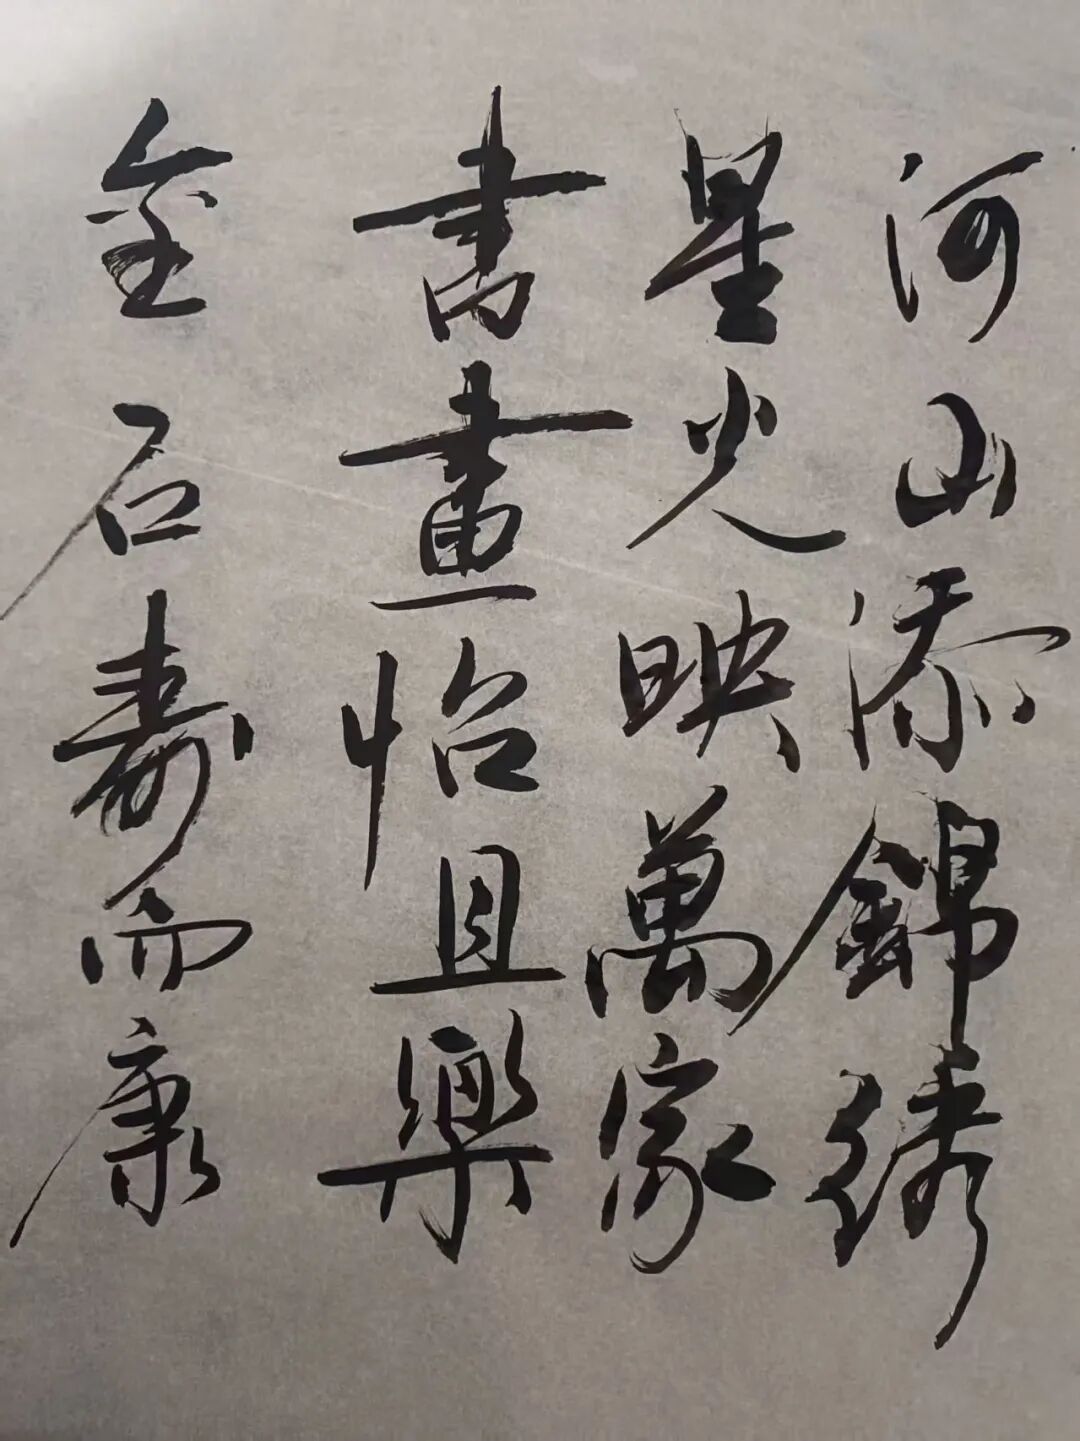 河山添錦繡
星火映萬家
書畫怡且樂
金石壽而康